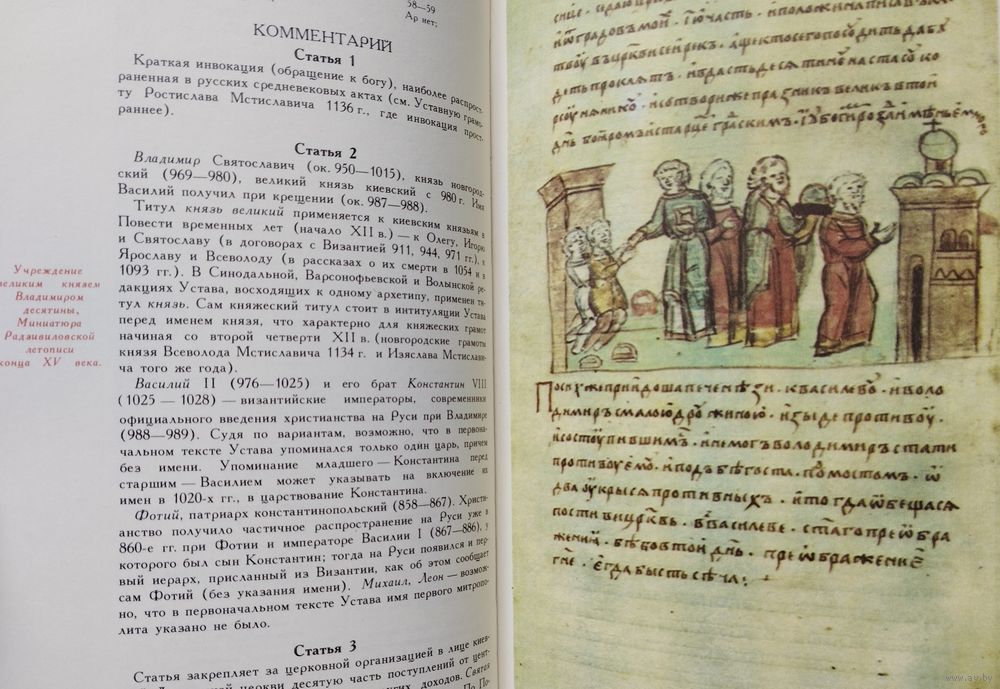 58—59
Ар нет;
КОММЕНТАРИЙ
Статья 1
Краткая инвокация (обращение к богу), наиболее распрост-
раненная в русских средневековых актах (см. Уставную грамо-
ту Ростислава Мстиславича 1136 г., где инвокация прост-
раннее).
Статья 2
Владимир Святославич (ок. 950—1015), князь новгород-
ский (969—980), великий князь киевский с 980 г. Имя
Василий получил при крещении (ок. 987—988).
Титул князь великий применяется к киевским князьям в
Повести временных лет (начало XII в.) — к Олегу, Игорю
и Святославу (в договорах с Византией 911, 944, 971 гг.), к
Ярославу и Всеволоду (в рассказах о их смерти в 1054 и в
1093 гг.). В Синодальной, Варсонофьевской и Волынской ре-
дакциях Устава, восходящих к одному архетипу, применен ти-
тул князь. Сам княжеский титул стоит в интитуляции Устава
перед именем князя, что характерно для княжеских грамот
начиная со второй четверти XII в. (новгородские грамоты
князя Всеволода Мстиславича 1134 г. и Изяслава Мстислави-
ча того же года).
Василий II (976—1025) и его брат Константин VIII
(1025 — 1028) — византийские императоры, современники
официального введения христианства на Руси при Владимире
(988—989). Судя по вариантам, возможно, что в первона-
чальном тексте Устава упоминался только один царь, причем
без имени. Упоминание младшего — Константина перед
старшим — Василием может указывать на включение их
имен в 1020-х гг., в царствование Константина.
Фотий, патриарх константинопольский (858—867). Христи-
анство получило частичное распространение на Руси уже в
860-е гг. при Фотии и императоре Василии I (867—886), у
которого был сын Константин; тогда на Руси появился и пер-
вый иерарх, присланный из Византии, как об этом сообщает
сам Фотий (без указания имени). Михаил, Леон — возмож-
но, что в первоначальном тексте Устава имя первого митропо-
лита указано не было.
Статья 3
Статья закрепляет за церковной организацией в лице киев-
церкви десятую часть поступлений от цент-
других доходов. Святая
По По-
Учреждение
великим князем
Владимиром
десятины,
Миниатюра
Радзивиловской
летописи
конца XV века.
твоу въ цркви сеи рек. аще кто сего посудить дабу
деть проклятъ. и вдасть десятину настасу ко
рсунянину. и сотвори же празник велик в той
Посих же приидоша печенѣзи. к василеву. и воло
димиръ с малою дружиною. изыде противоу.
и состоупившимъ. и не могъ володимиръ стати
противоу ему. и подъбѣг ста. под мостом. ѿ
два оукрыся противныхъ. и тогда ѡбещася
поставити црквь. в василеве. стаго преѡбра
жениꙗ. бѣ бо в той днь. преѡбражение
гне. егда бысть сѣча.
www.av.by